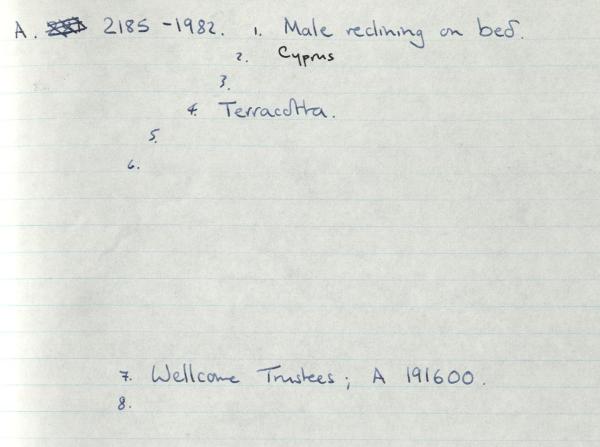 A. 2185 - 1982. 1. Male reclining on bed.
2. Cyprus
3.
4. Terracotta.
5.
6.
7. Wellcome Trustees; A 191600.
8.